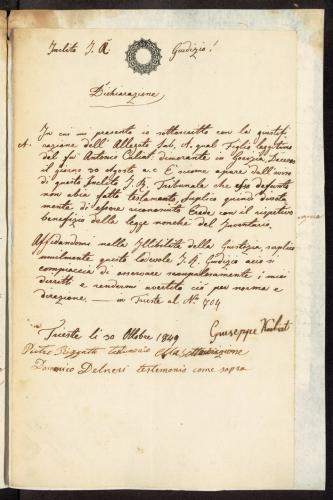 Inclito I. R. Giudizio!
Dichiarazione
In cui mi presento io sottoscritto con la giustifi,
A. cazione dell' Allegato Sub. A. qual Figlio leggittimo
del fu Antonio demorante in Gorizia
il giorno 30 Agosto a. c. E siccome dall'
di questo Inclito I. R. Tribunale che esso defunto
non abia fatto testamento, suplico quindi
mente di essere riconosciuto Erede con il rispettivo
benefizio della legge nonché del Inventario.
Affidandomi nella della Giustizia, suplico
umilmente questo Lodevole I. R. Giudizio acciò si
compiaccia di osservare i miei
diretti e rendermi avertito ciò per norma e
direzione. — in Trieste al No. 704
Trieste li 30 Ottobre 1849 Giuseppe
Pietro testimonio alla
Domenico Delneri testemonio come sopra